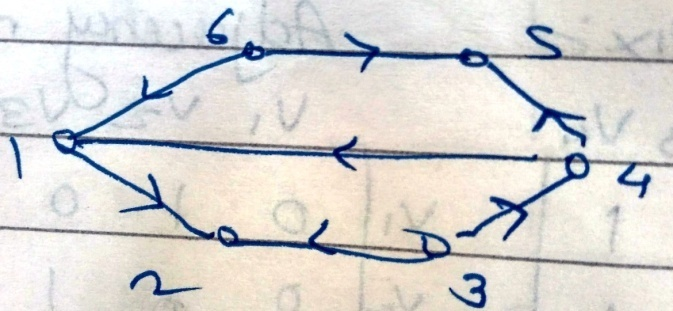 6 5
1 4
2 3